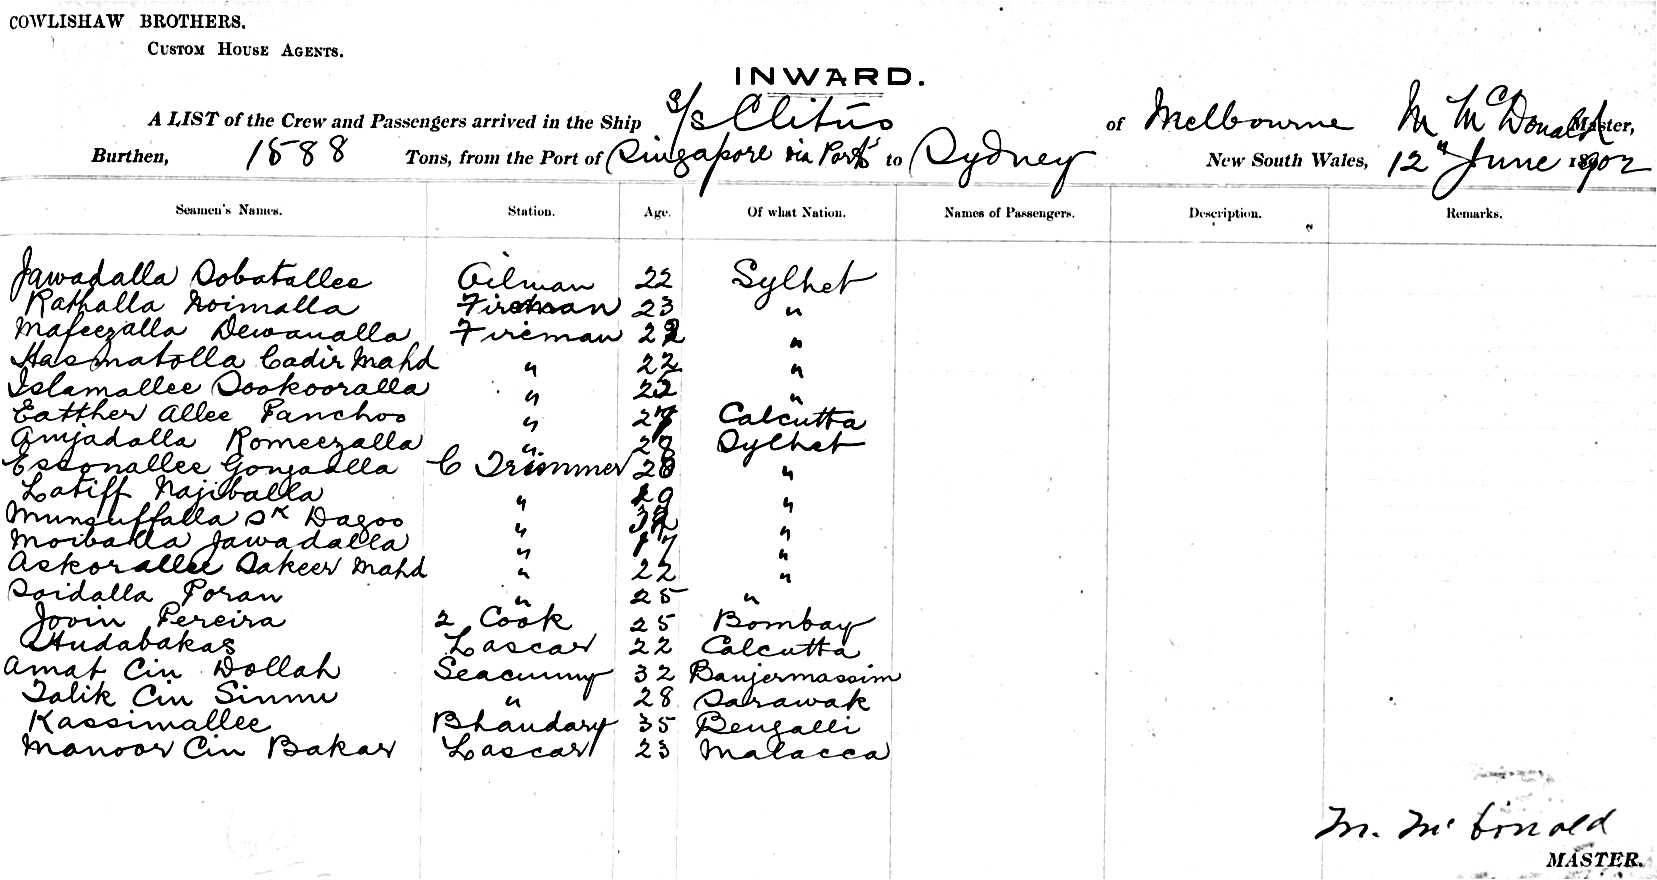 COWLISHAW BROTHERS.
CUSTOM HOUSE AGENTS.
INWARD.
A LIST of the Crew and Passengers arrived in the Ship S/S Clitus of Melbourne M McDonald Master,
Burthen, 1588 Tons, from the Port of Singapore via Ports to Sydney New South Wales, 12th June 1902
Seamen's Names. Station. Age. Of what Nation. Names of Passengers. Description. Remarks.
Jawadalla Sobatallee Oilman 22 Sylhet
Rathalla Noimalla Fireman 23 "
Mafeezalla Dewanalla Fireman "
Hasmatolla Cadir Mahd " 22 "
Islamallee Sookooralla " "
Eatther Allee Panchoo " Calcutta
Amjadalla Romeezalla " 28 Sylhet
Essonallee Gonjaalla C Trimmer "
Latiff Najiballa " "
Munguffalla Sk Dagoo " "
Moiballa Jawadalla " 17 "
Askorallee Sakeer Mahd " 22 "
Soidalla Poran " 25 "
Jovin Pereira 2 Cook 25 Bombay
Hudabakas Lascar 22 Calcutta
Amat Cin Dollah Seacunny 32 Banjermassim
Talik Cin Sinmu " 28 Sarawak
Kassimallee Bhandary 35 Bengalli
Manoor Cin Bakar Lascar 23 Malacca
M. McDonald
MASTER.